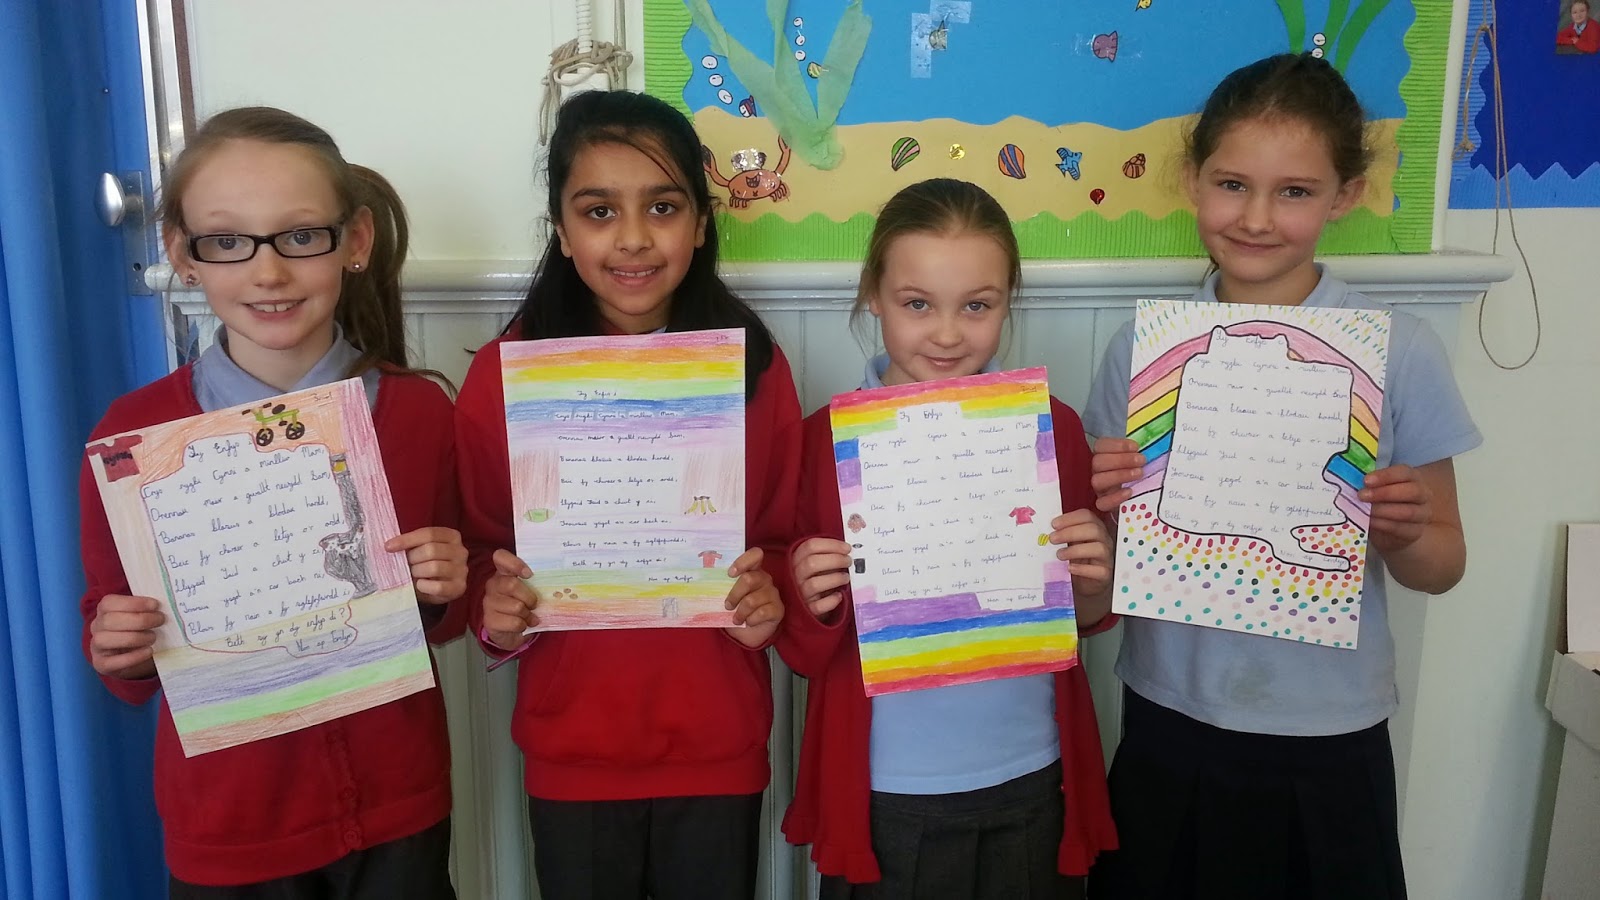 Fy Enfys i
Crys rygbi Cymru a minlliw Mam,
Orennau mawr a gwallt newydd Sam,
Bananas blasus a blodau hardd,
Beic fy chwaer a letys o'r ardd,
Llygaid Taid a chwt y ci,
Trowsus ysgol a'n car bach ni,
Blows fy nain a fy sglefrfwrdd i,
Beth sy yn dy enfys di?
Non ap Emlyn
Fy Enfys i
Crys rygbi Cymru a minlliw Mam,
Orennau mawr a gwallt newydd Sam,
Bananas blasus a blodau hardd,
Beic fy chwaer a letys o'r ardd,
Llygaid Taid a chwt y ci,
Trowsus ysgol a'n car bach ni,
Blows fy nain a fy sglefrfwrdd i,
Beth sy yn dy enfys di?
Non ap Emlyn
Fy Enfys i
Crys rygbi Cymru a minlliw Mam,
Orennau mawr a gwallt newydd Sam,
Bananas blasus a blodau hardd,
Beic fy chwaer a letys o'r ardd,
Llygaid Taid a chwt y ci,
Trowsus ysgol a'n car bach ni,
Blows fy nain a fy sglefrfwrdd i,
Beth sy yn dy enfys di?
Non ap Emlyn
Fy Enfys i
Crys rygbi Cymru a minlliw Mam,
Orennau mawr a gwallt newydd Sam,
Bananas blasus a blodau hardd,
Beic fy chwaer a letys o'r ardd,
Llygaid Taid a chwt y ci,
Trowsus ysgol a'n car bach ni,
Blows fy nain a fy sglefrfwrdd i,
Beth sy yn dy enfys di?
Non ap Emlyn